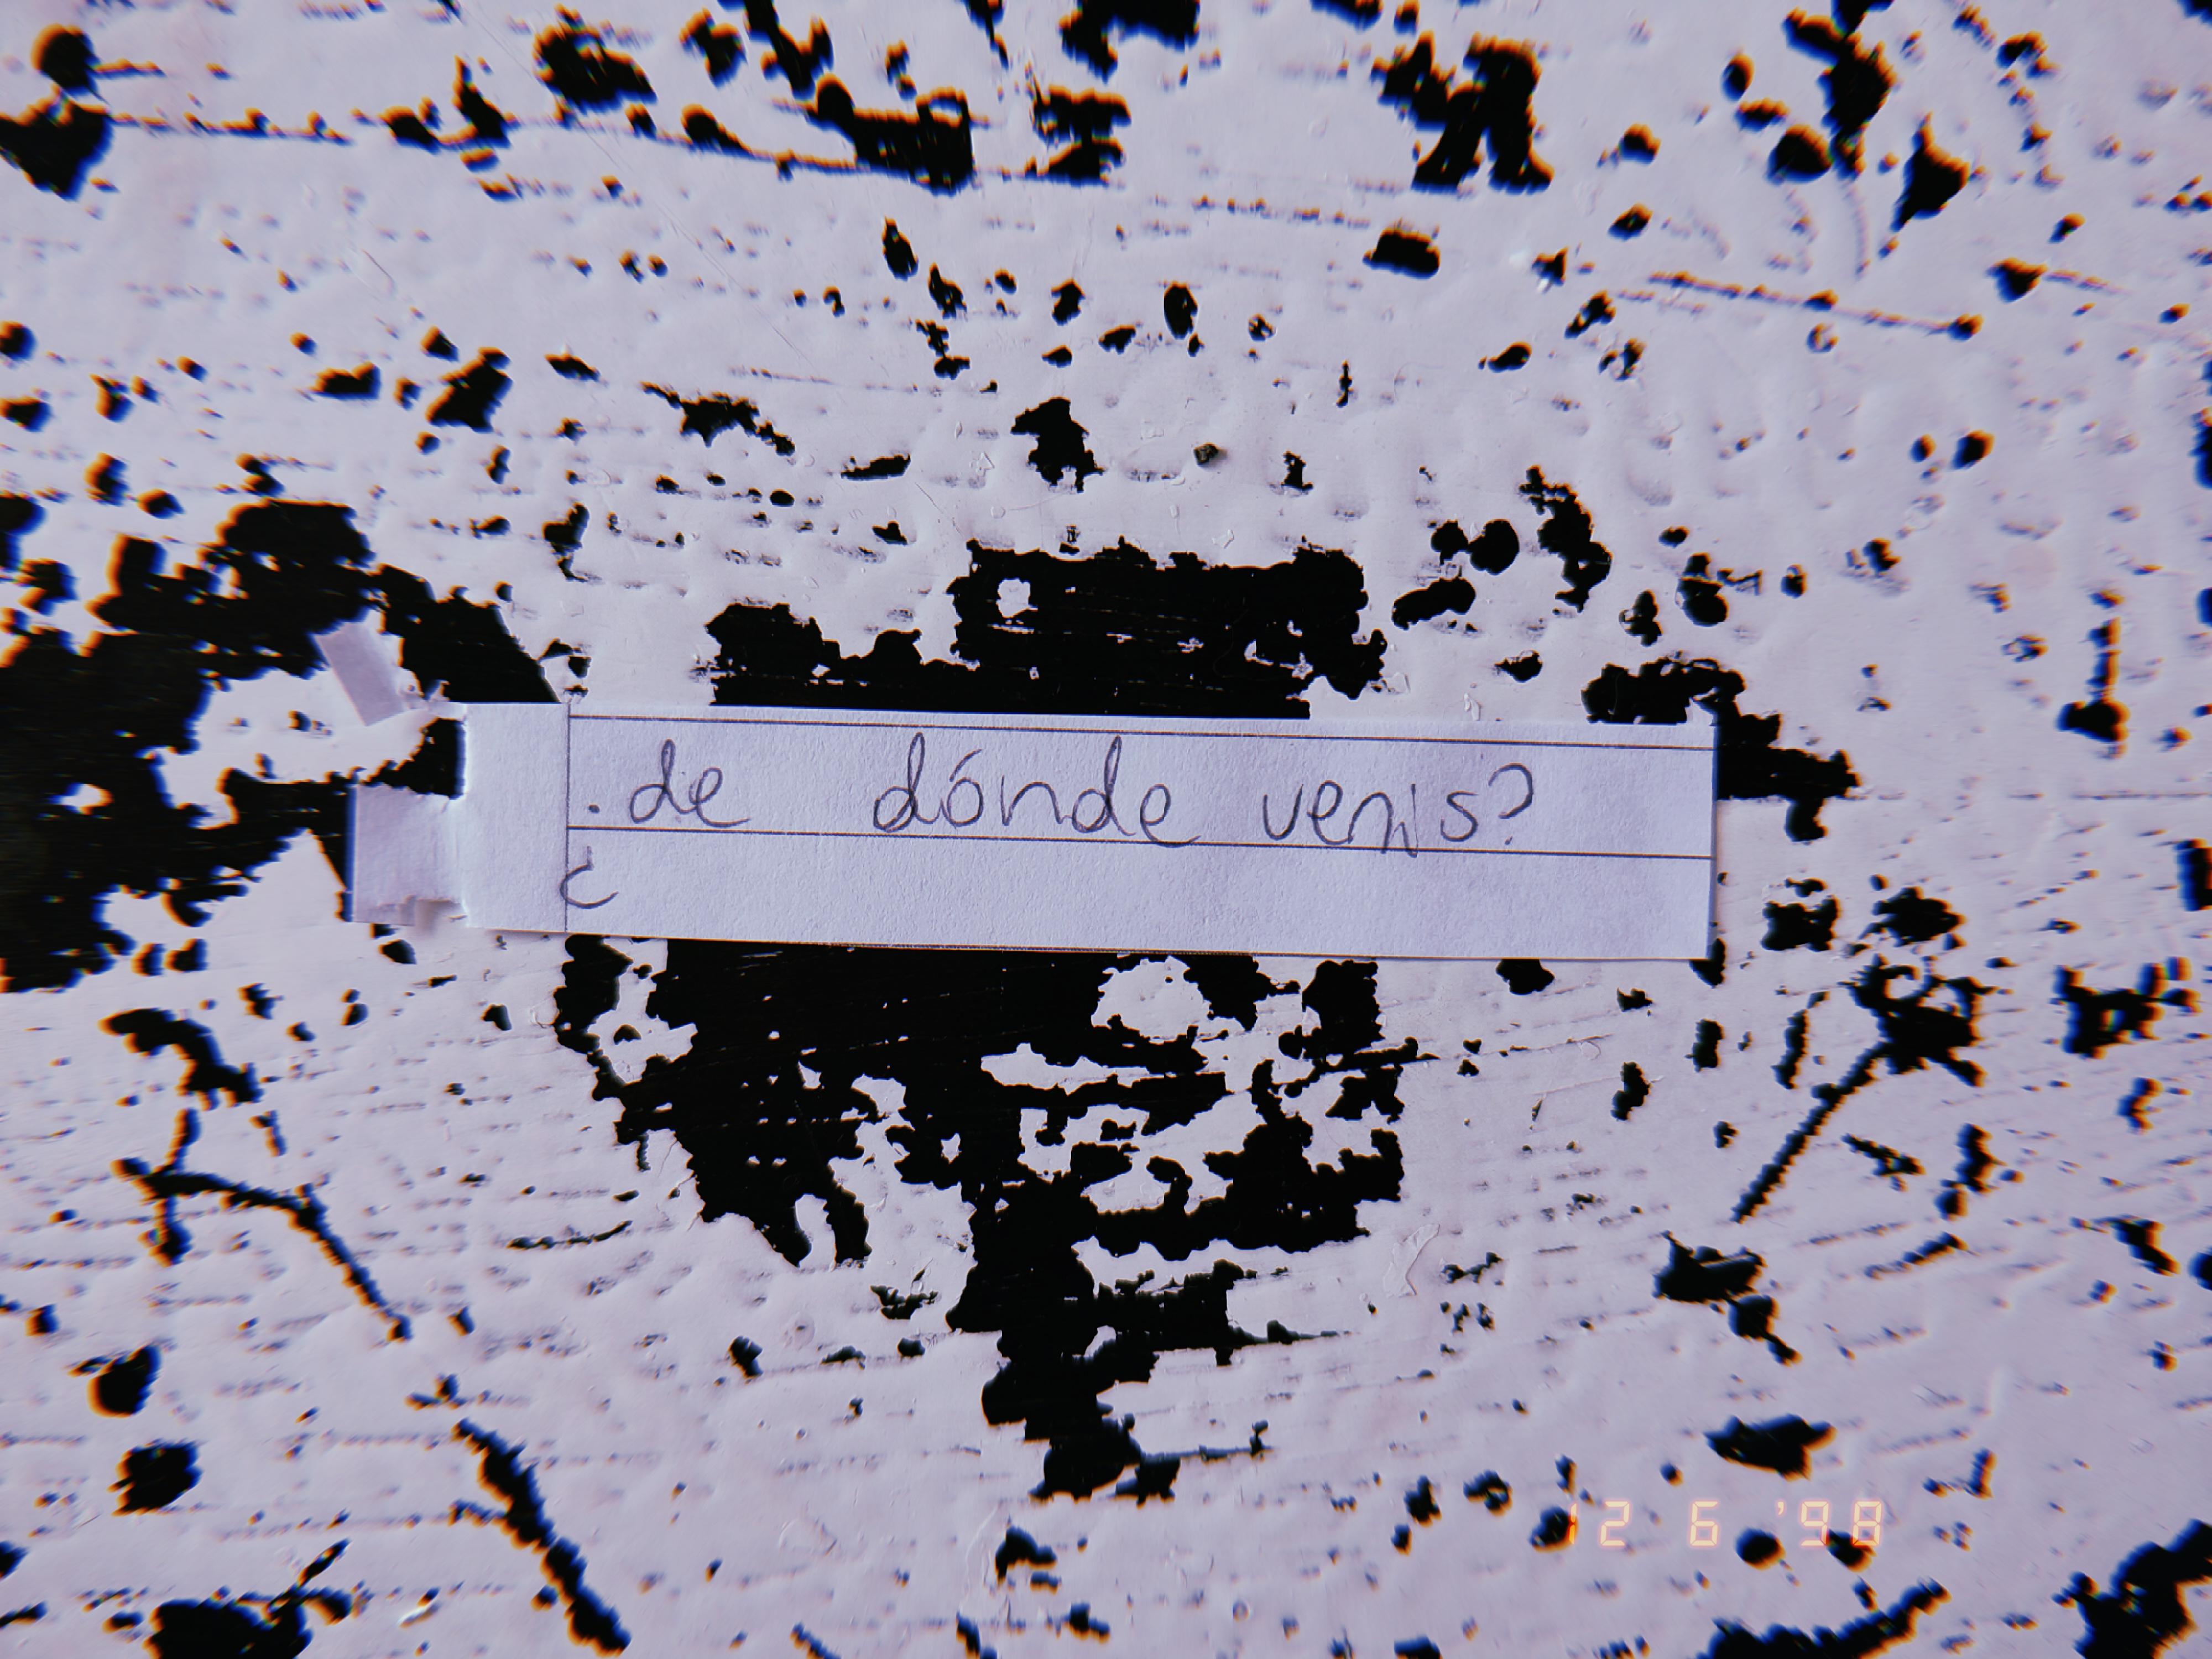 . de dónde venis?
¿
12 6 '98